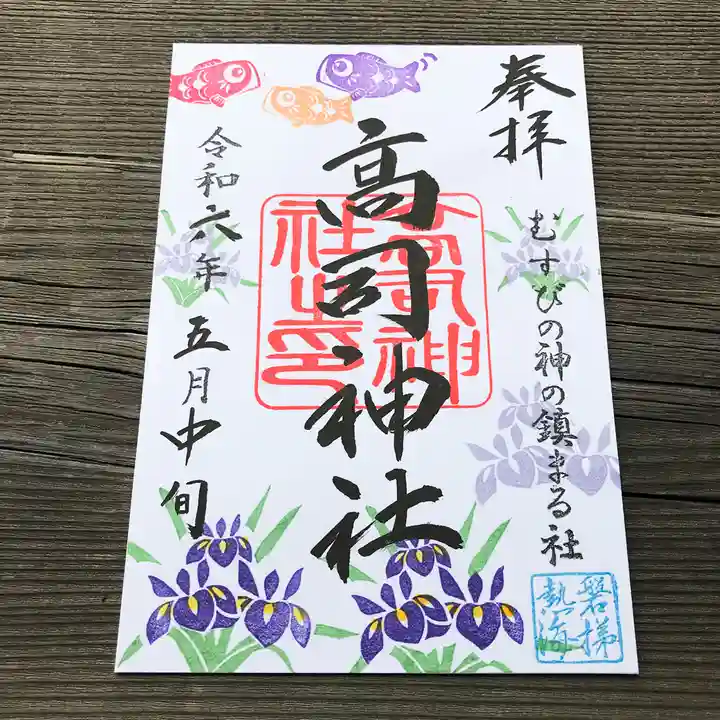 奉拝
むすびの神の鎮まる社
高司神社
高司神社之印
令和六年 五月中旬
磐梯
熱海